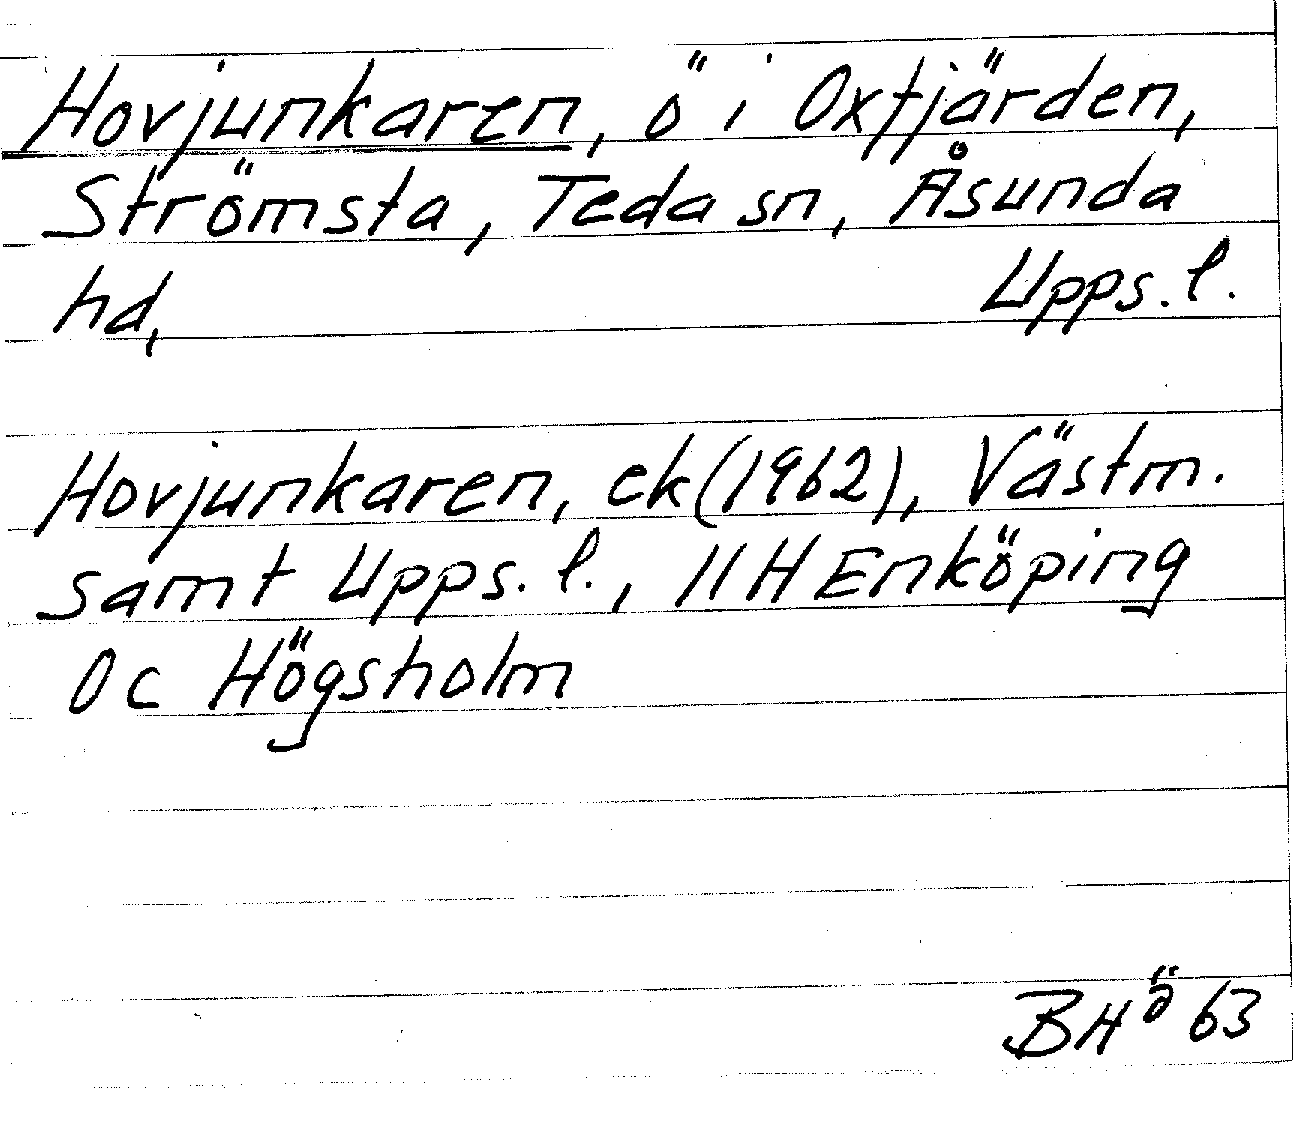 Hovjunkaren, ö i Oxfjärden,
Strömsta, Teda sn, Åsunda
hd, Upps. l.
Hovjunkaren, ek (1962), Västm.
samt Upps. l., 11H Enköping
0c Högsholm
BHö 63